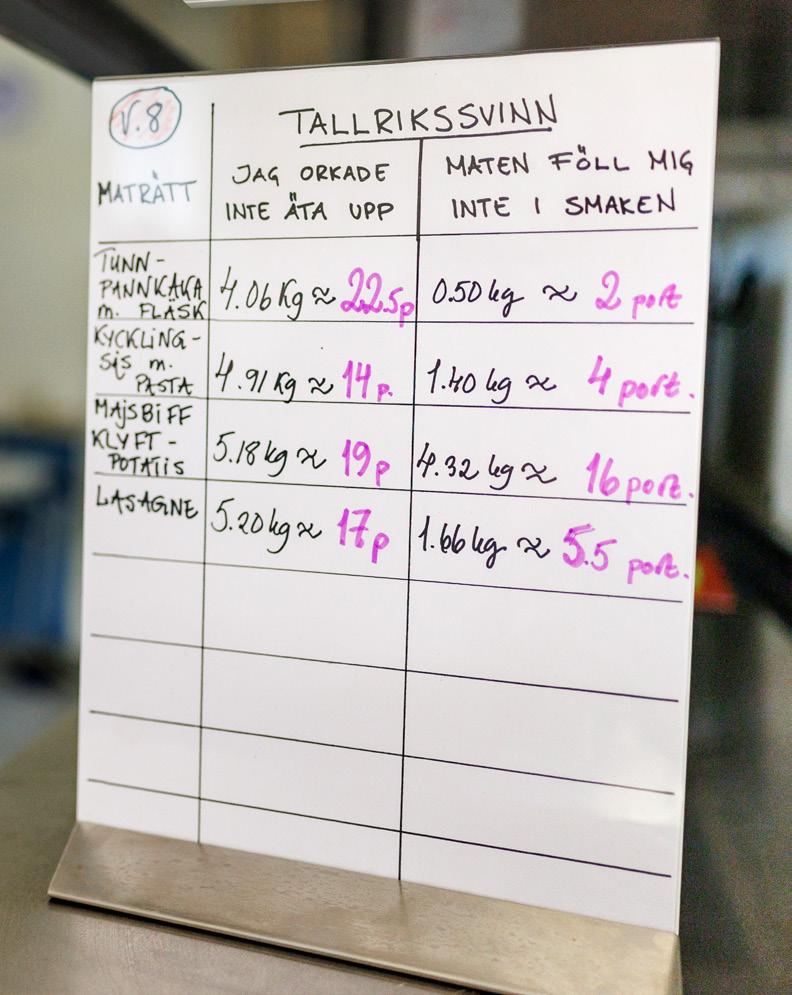 V.8
TALLRIKSSVINN
MATRÄTT
JAG ORKADE
INTE ÄTA UPP
MATEN FÖLL MIG
INTE I SMAKEN
TUNN-
PANNKAKA
m. FLÄSK
4.06 Kg ≈ 22.5p
0.50 kg ≈ 2 port
KYCKLING-
SÅS m.
PASTA
4.91 Kg ≈ 14 p.
1.40 kg ≈ 4 port.
MAJSBIFF
KLYFT-
POTATIS
5.18 kg ≈ 19 p
4.32 kg ≈ 16 port.
LASAGNE
5.20 kg ≈ 17 p
1.66 kg ≈ 5.5 port.